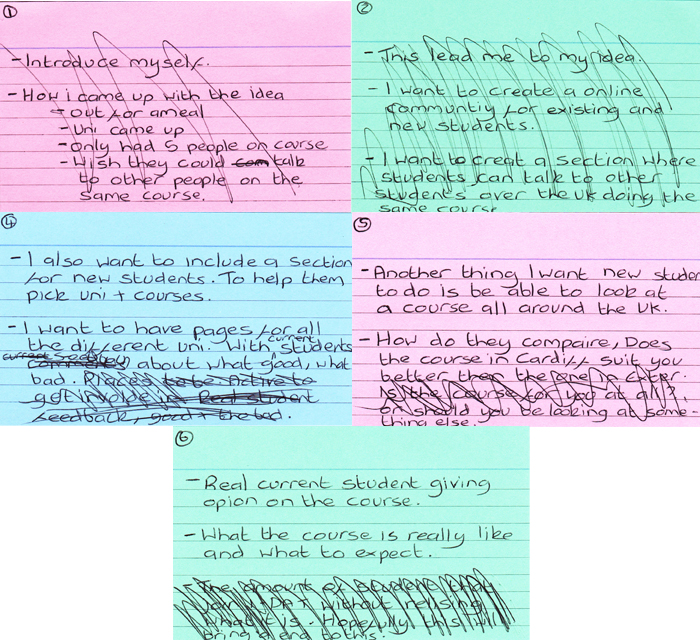 ①
- Introduce myself.
- How i came up with the idea
- out for a meal
- Uni came up
- Only had 5 people on course
- Wish they could com talk
to other people on the
same course.
②
- This lead me to my idea.
- I want to create a online
communtiy for existing and
new students.
- I want to creat a section where
students can talk to other
students over the uk doing the
same course
④
- I also want to include a section
for new students. To help them
pick uni + courses.
- I want to have pages for all
the different uni. With current students
comments about what good, what
bad. Places to be Active to
get involde in Real student
feedback, good + the bad.
⑤
- Another thing I want new studen
to do is be able to look at
a course all around the UK.
- How do they compaire, Does
the course in Cardiff suit you
better then the one in Exter.
Is the course for you at all?,
or should you be looking at some-
thing else.
⑥
- Real current student giving
opion on the course.
- What the course is really like
and what to expect.
- The amount of student that
join without relising
what it is. Hopefully this will
bring a end to this.